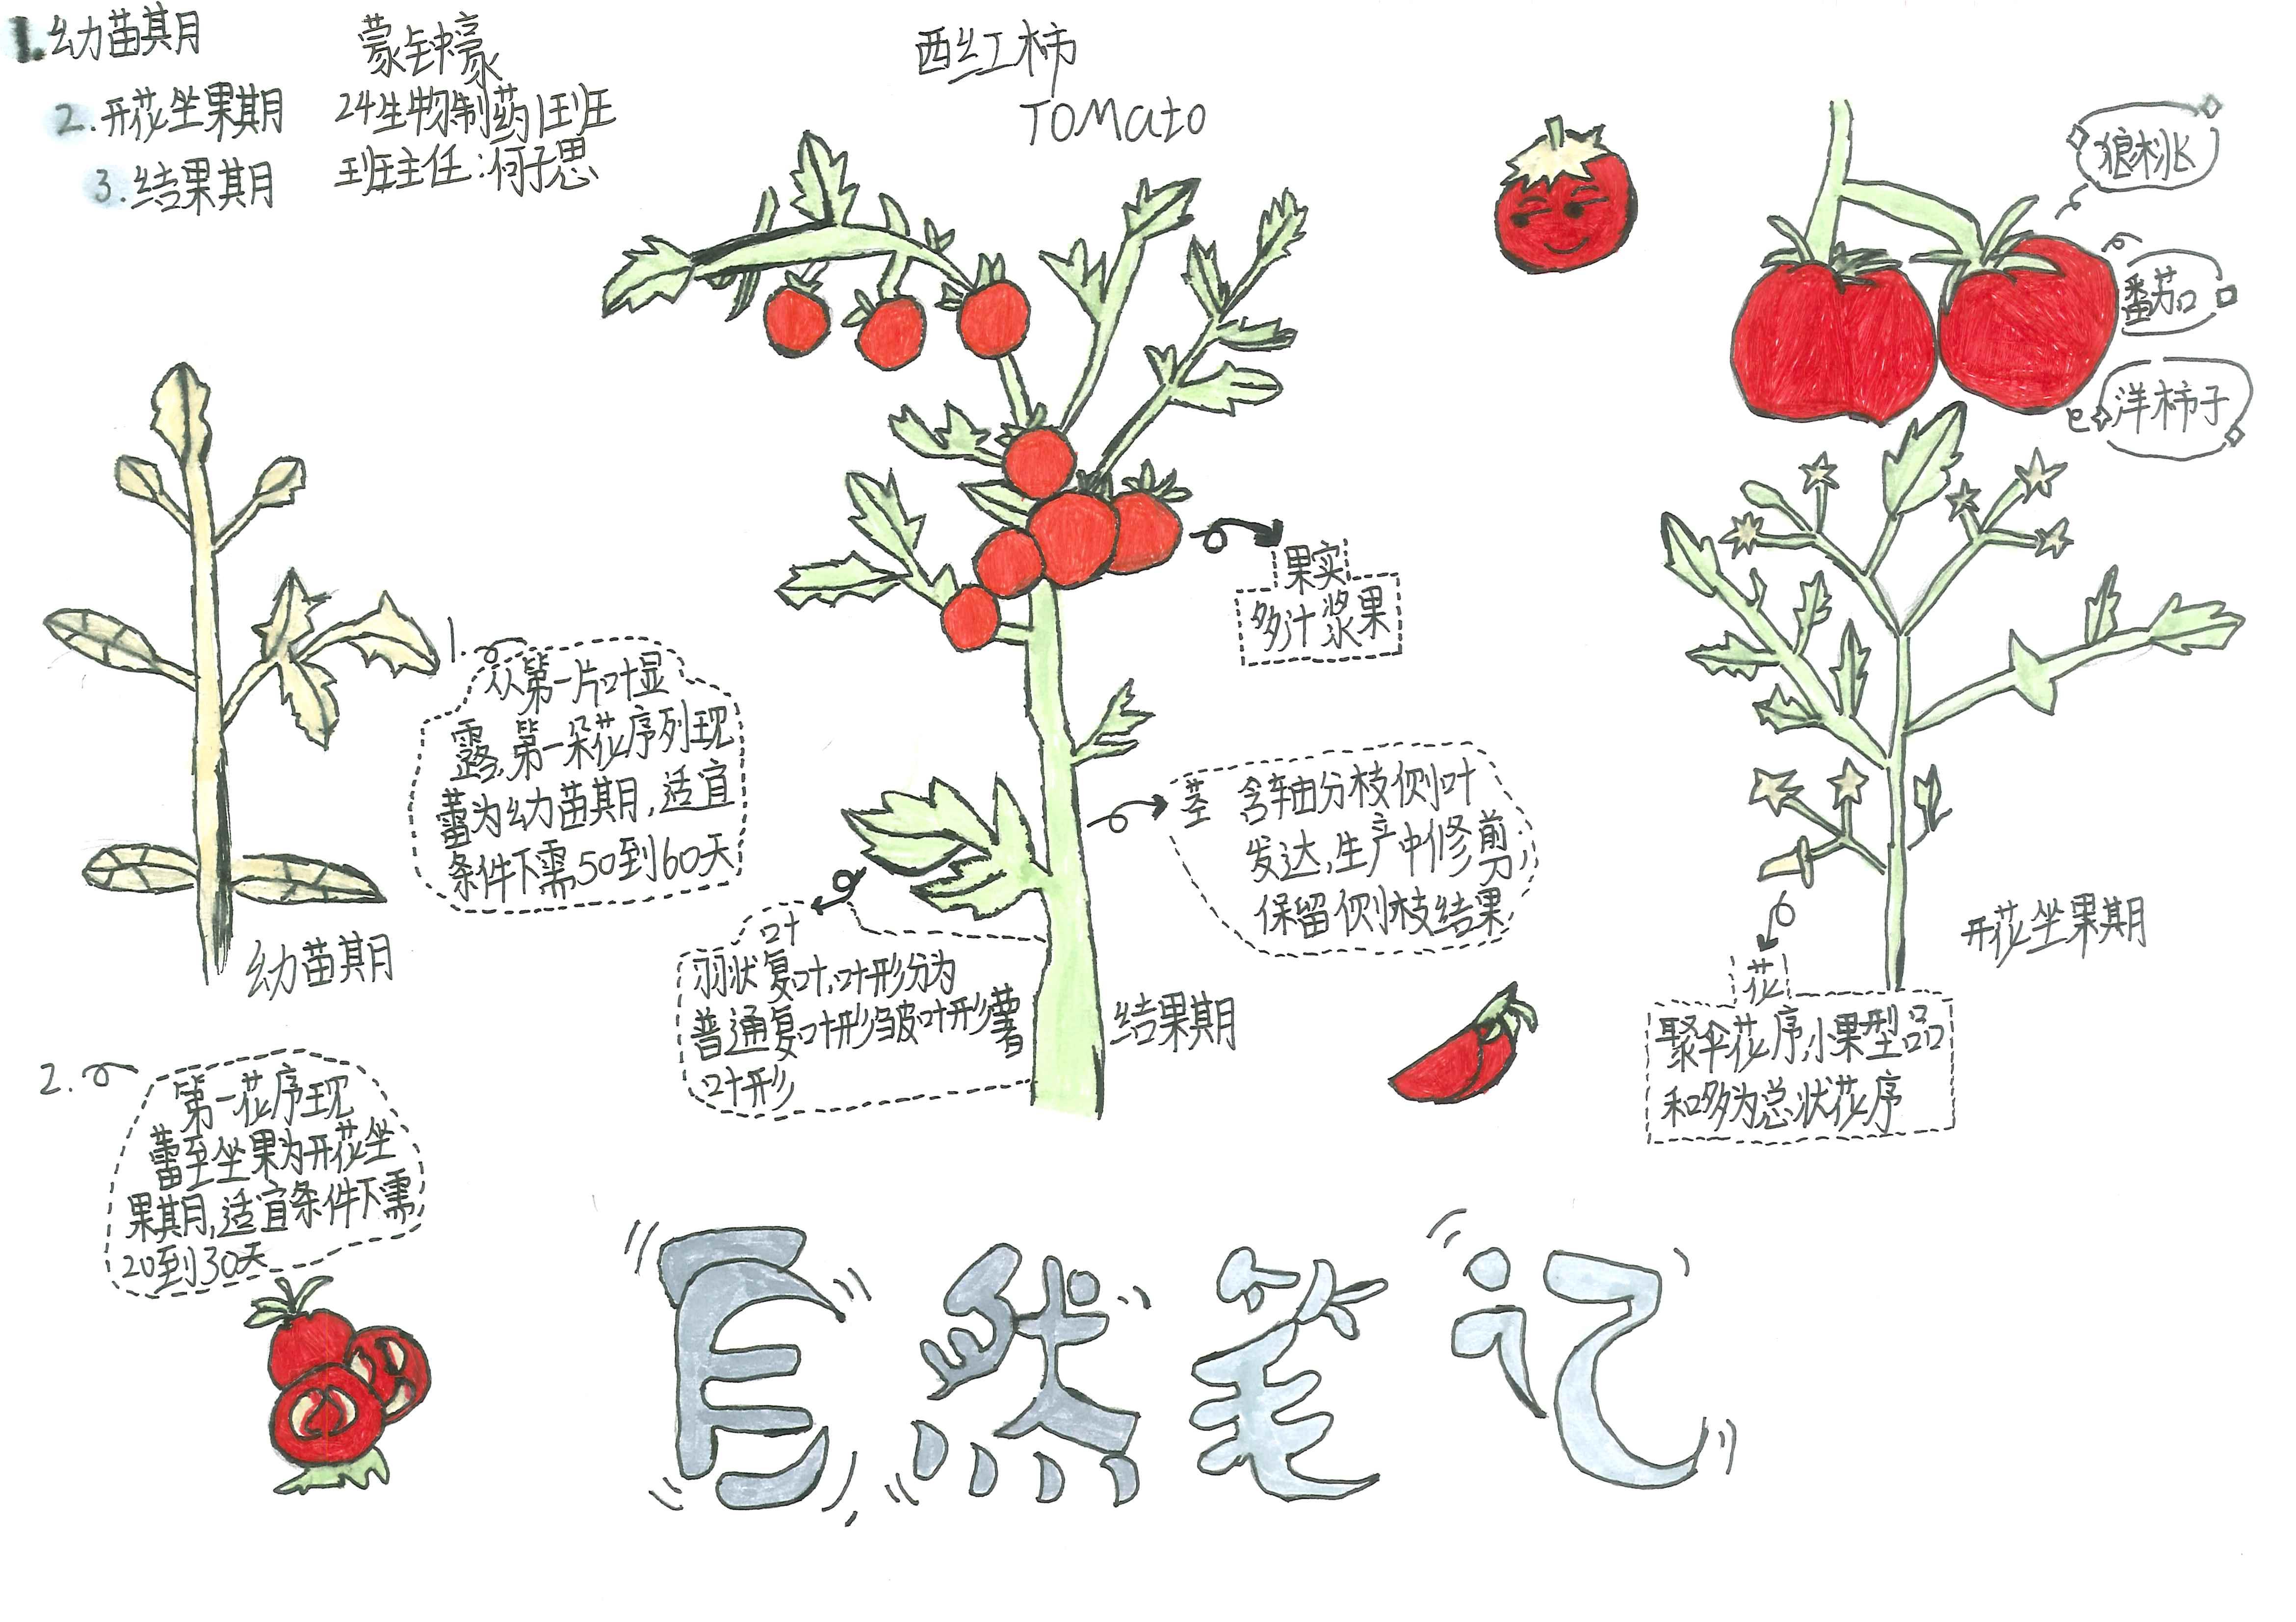 1.幼苗期
2.开花坐果期
3.结果期
蒙钟豪
24生物制药1班
班主任:何子思
西红柿
TOMato
狼桃
番茄
洋柿子
1.
从第一片叶显
露,第一朵花序列现
蕾为幼苗期,适宜
条件下需50到60天
幼苗期
果实
多汁浆果
茎 含轴分枝侧叶
发达,生产中修剪
保留侧枝结果
叶
羽状复叶,叶形分为
普通复叶形皱叶形薯
叶形
结果期
开花坐果期
花
聚伞花序,小果型品
和多为总状花序
2.
第一花序现
蕾至坐果为开花坐
果期,适宜条件下需
20到30天
自然笔记